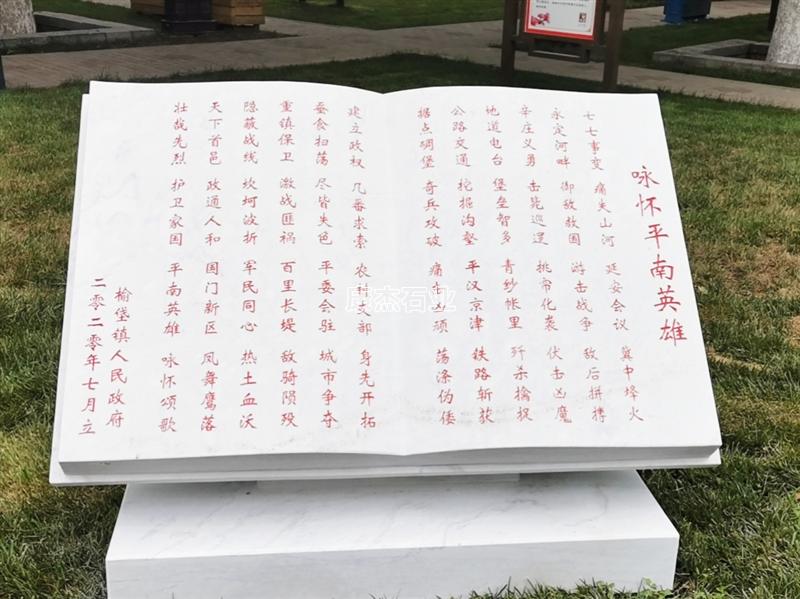 咏怀平南英雄
七七事变 痛失山河 延安会议 冀中烽火
永定河畔 御敌救国 游击战争 敌后拼搏
辛庄义勇 击毙巡逻 挑帘化装 伏击凶魔
地道电台 堡垒智多 青纱帐里 歼杀擒捉
公路交通 挖掘沟壑 平汉京津 铁路斩获
据点碉堡 奇兵攻破 痛 顽 荡涤伪倭
建立政权 几番求索 农 部 身先开拓
蚕食扫荡 尽皆失色 平委会驻 城市争夺
重镇保卫 激战匪祸 百里长堤 敌骑陨殁
隐蔽战线 坎坷波折 军民同心 热土血沃
天下首邑 政通人和 国门新区 凤舞鹰落
壮哉先烈 护卫家国 平南英雄 咏怀颂歌
榆垡镇人民政府
二零二零年七月立
唐杰石业